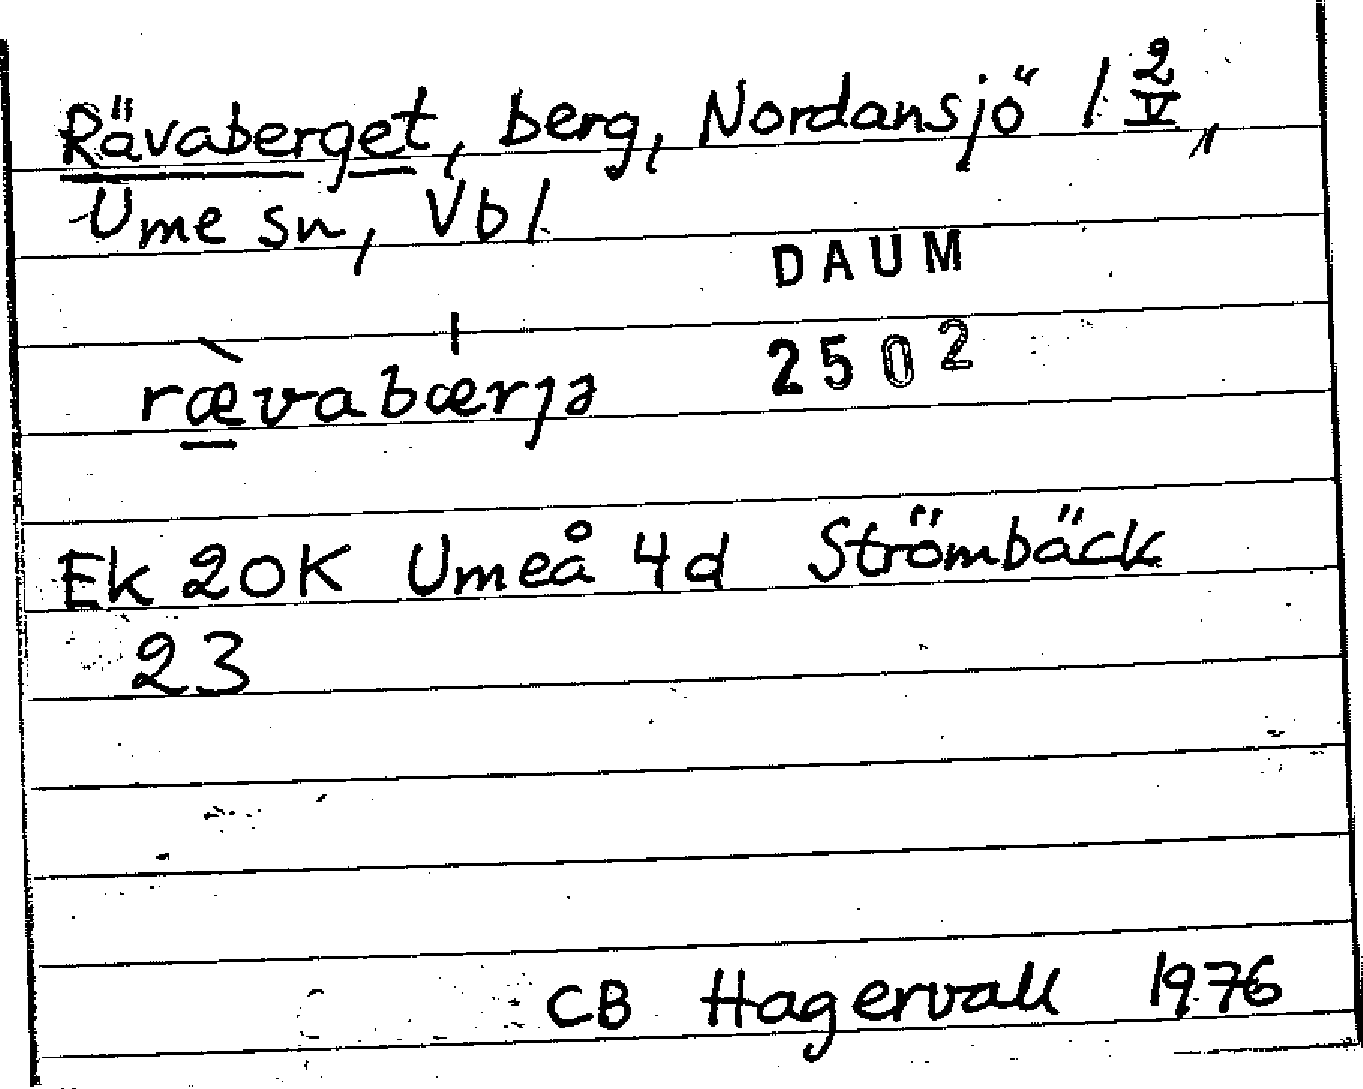 Rävaberget, berg, Nordansjö / 2/V,
Ume sn, Vb /
DAUM
2502
rævabærjə
Ek 20K Umeå 4d Strömbäck
23
CB Hagervall 1976